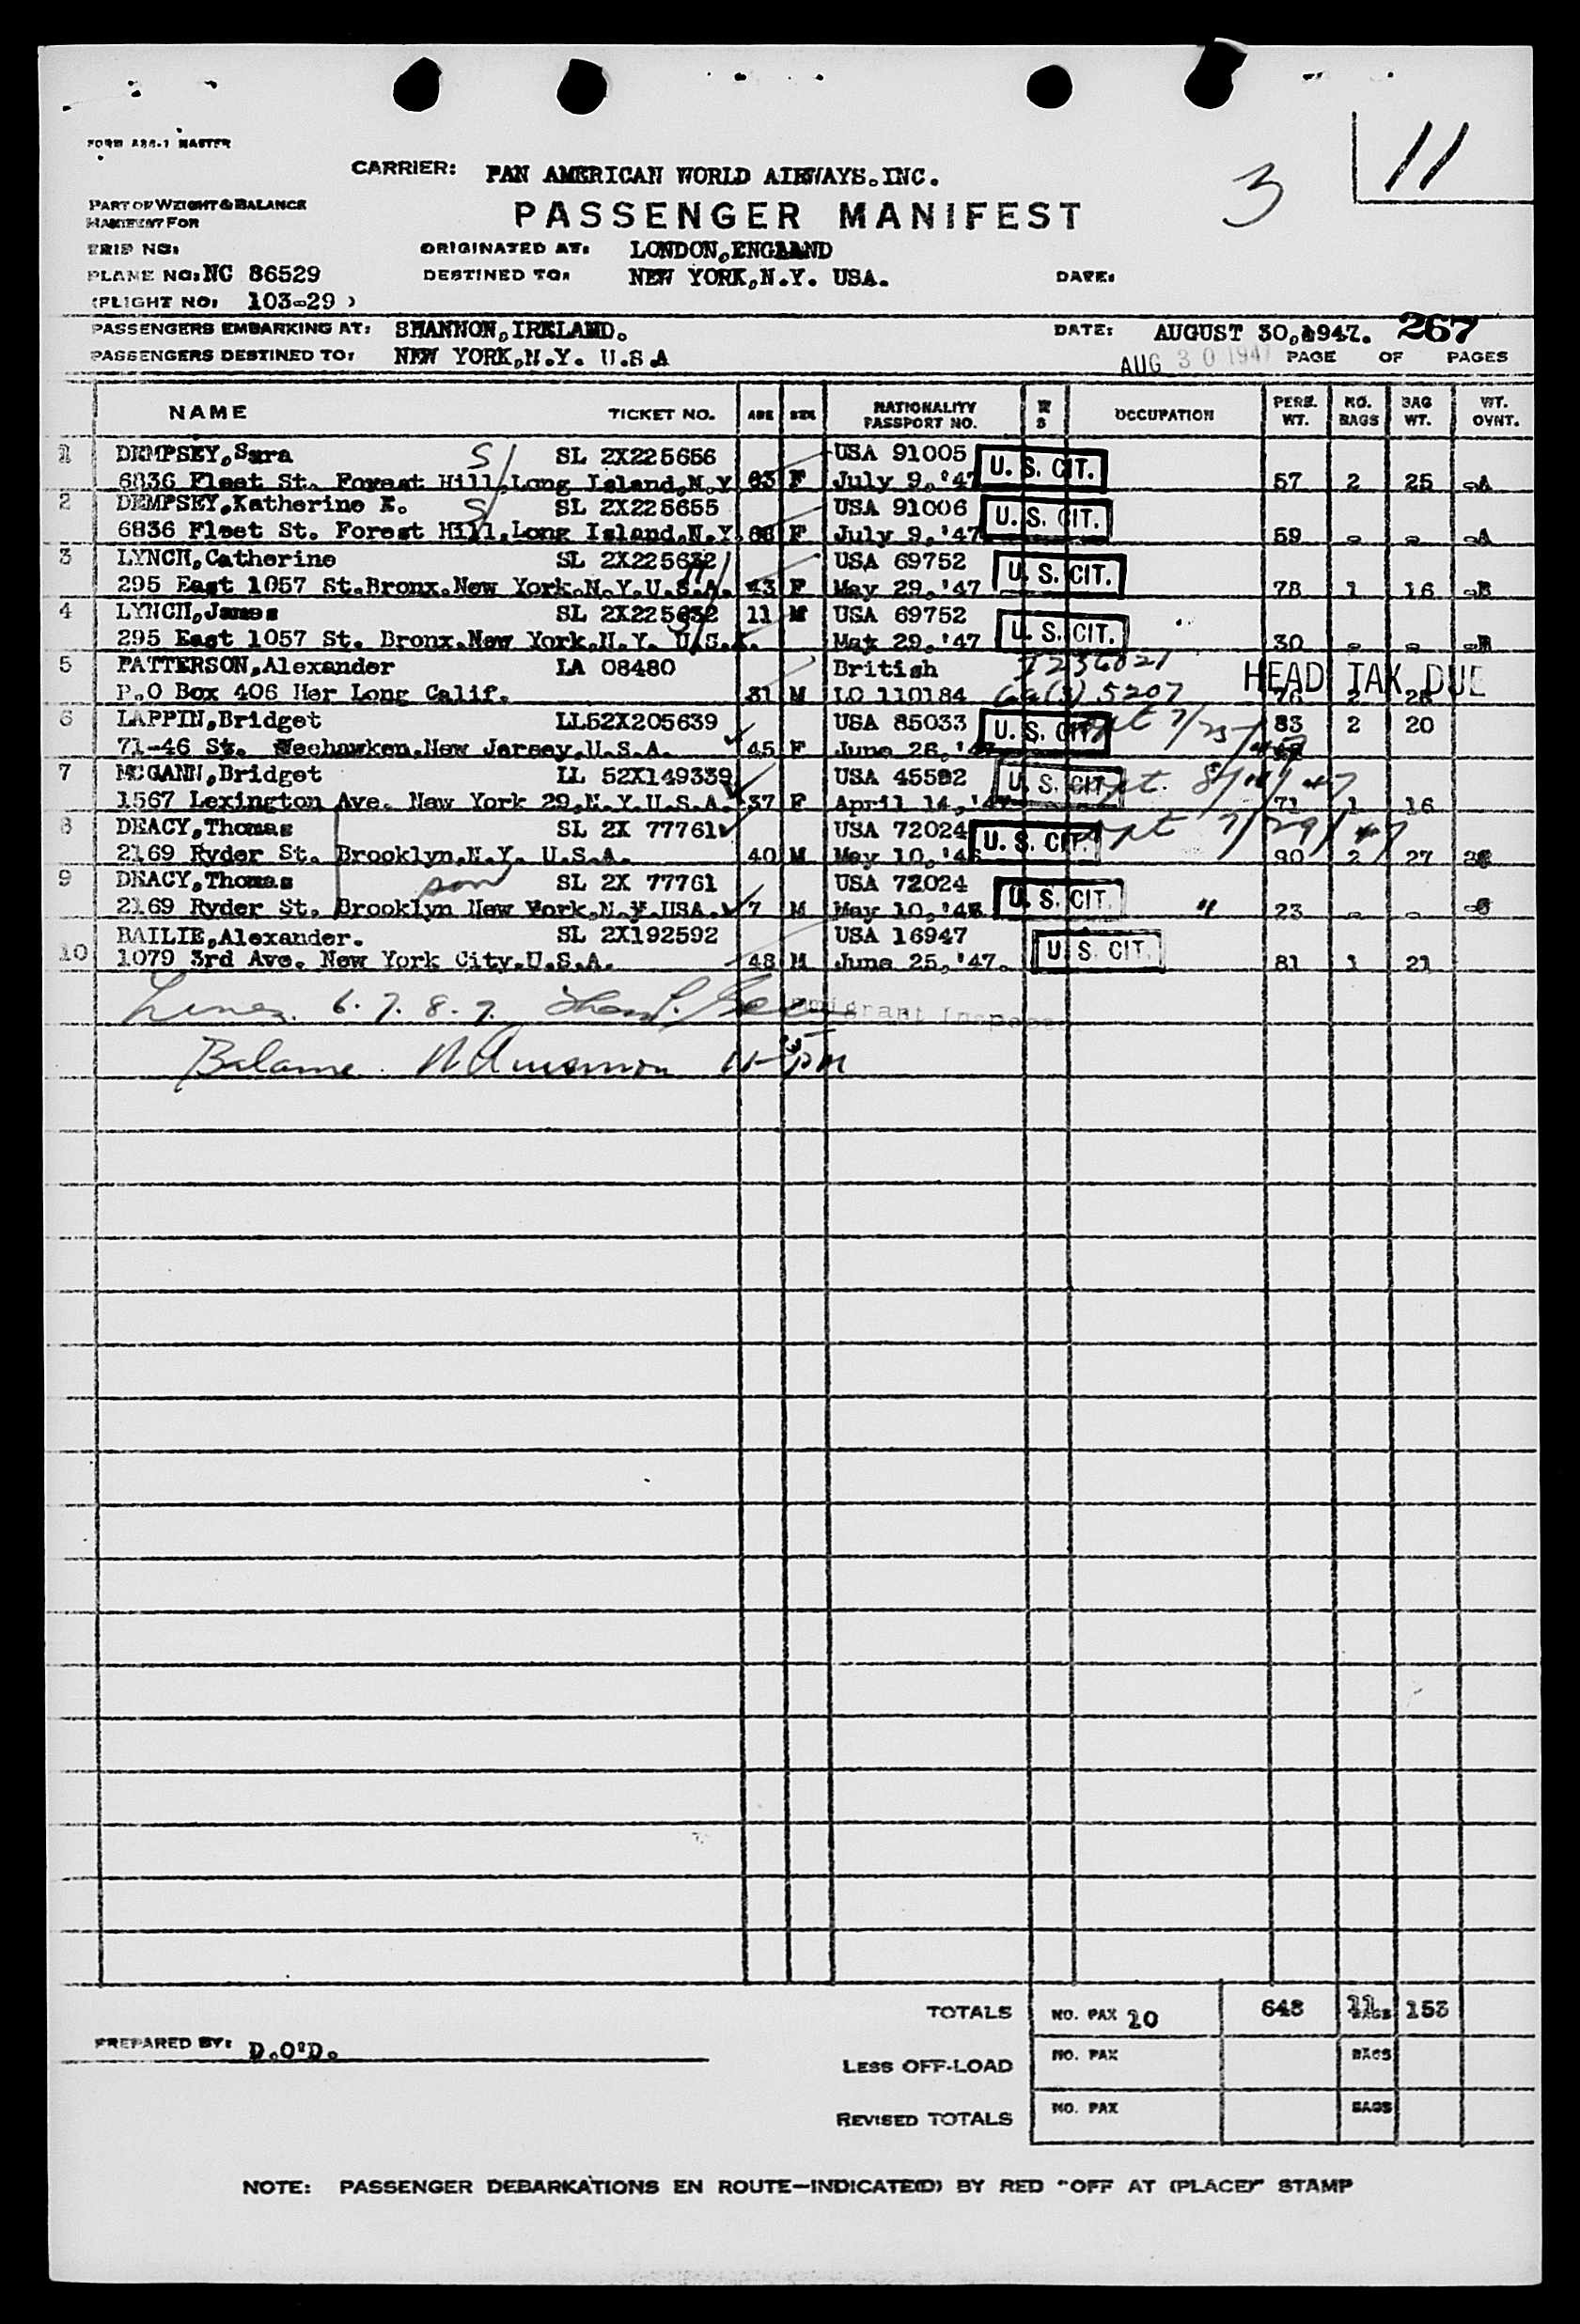 FORM AS6-1 MASTER
11
CARRIER: PAN AMERICAN WORLD AIRWAYS.INC.
3
PART OF WEIGHT & BALANCE
MANIFEST FOR
PASSENGER MANIFEST
TRIP NO:
ORIGINATED AT: LONDON,ENGLAND
PLANE NO: NC 86529
DESTINED TO: NEW YORK,N.Y. USA.
DATE:
(FLIGHT NO: 103-29 )
PASSENGERS EMBARKING AT: SHANNON,IRELAND.
DATE: AUGUST 30,1947. 267
PASSENGERS DESTINED TO: NEW YORK,N.Y. U.S.A
AUG 30 1947 PAGE OF PAGES
NAME TICKET NO. AGE SEX NATIONALITY PASSPORT NO. OCCUPATION PERS. WT. NO. BAGS BAG WT. WT. OVNT.
1 DEMPSEY,Sara S SL 2X225656 USA 91005 U. S. CIT.
6836 Fleet St. Forest Hill,Long Island,N.Y. 63 F July 9,'47 57 2 25 -A
2 DEMPSEY,Katherine K. S SL 2X225655 USA 91006 U. S. CIT.
6836 Fleet St. Forest Hill,Long Island,N.Y. F July 9,'47 59 - - -A
3 LYNCH,Catherine SL 2X225632 USA 69752 U. S. CIT.
295 East 1057 St.Bronx.New York.N.Y.U.S.A. 43 F May 29,'47 78 1 16 -B
4 LYNCH,James SL 2X225632 11 M USA 69752 U. S. CIT. "
295 East 1057 St. Bronx.New York.N.Y. U.S.A. Mat 29,'47 30 - - -B
5 PATTERSON,Alexander LA 08480 British I236021 HEAD TAX DUE
P.O Box 406 Her Long Calif. 31 M LO 110184 5207 76 2 28
6 LAPPIN,Bridget LL52X205639 USA 85033 U. S. CIT. 83 2 20
71-46 St. Weehawken,New Jersey,U.S.A. 45 F June 26,'47
7 MCGANN,Bridget LL 52X149339 USA 45592 U. S. CIT.
1567 Lexington Ave. New York 29,N.Y.U.S.A. 37 F April 14,'47 71 1 16
8 DEACY,Thomas SL 2X 77761 USA 72024 U. S. CIT.
2169 Ryder St. Brooklyn,N.Y. U.S.A. 40 M May 10,'46 90 2 27
9 DEACY,Thomas son SL 2X 77761 USA 72024 U. S. CIT. "
2169 Ryder St. Brooklyn New York.N.Y.USA. 7 M May 10,'46 23 - -
10 BAILIE,Alexander. SL 2X192592 USA 16947 U. S. CIT.
1079 3rd Ave. New York City.U.S.A. 48 M June 25,'47. 81 1 21
Lines. 6. 7. 8. 9.
Balance
TOTALS NO. PAX 10 648 11 BAGS 153
PREPARED BY: D.O'D.
LESS OFF-LOAD NO. PAX BAGS
REVISED TOTALS NO. PAX BAGS
NOTE: PASSENGER DEBARKATIONS EN ROUTE—INDICATE(D) BY RED "OFF AT (PLACE)" STAMP